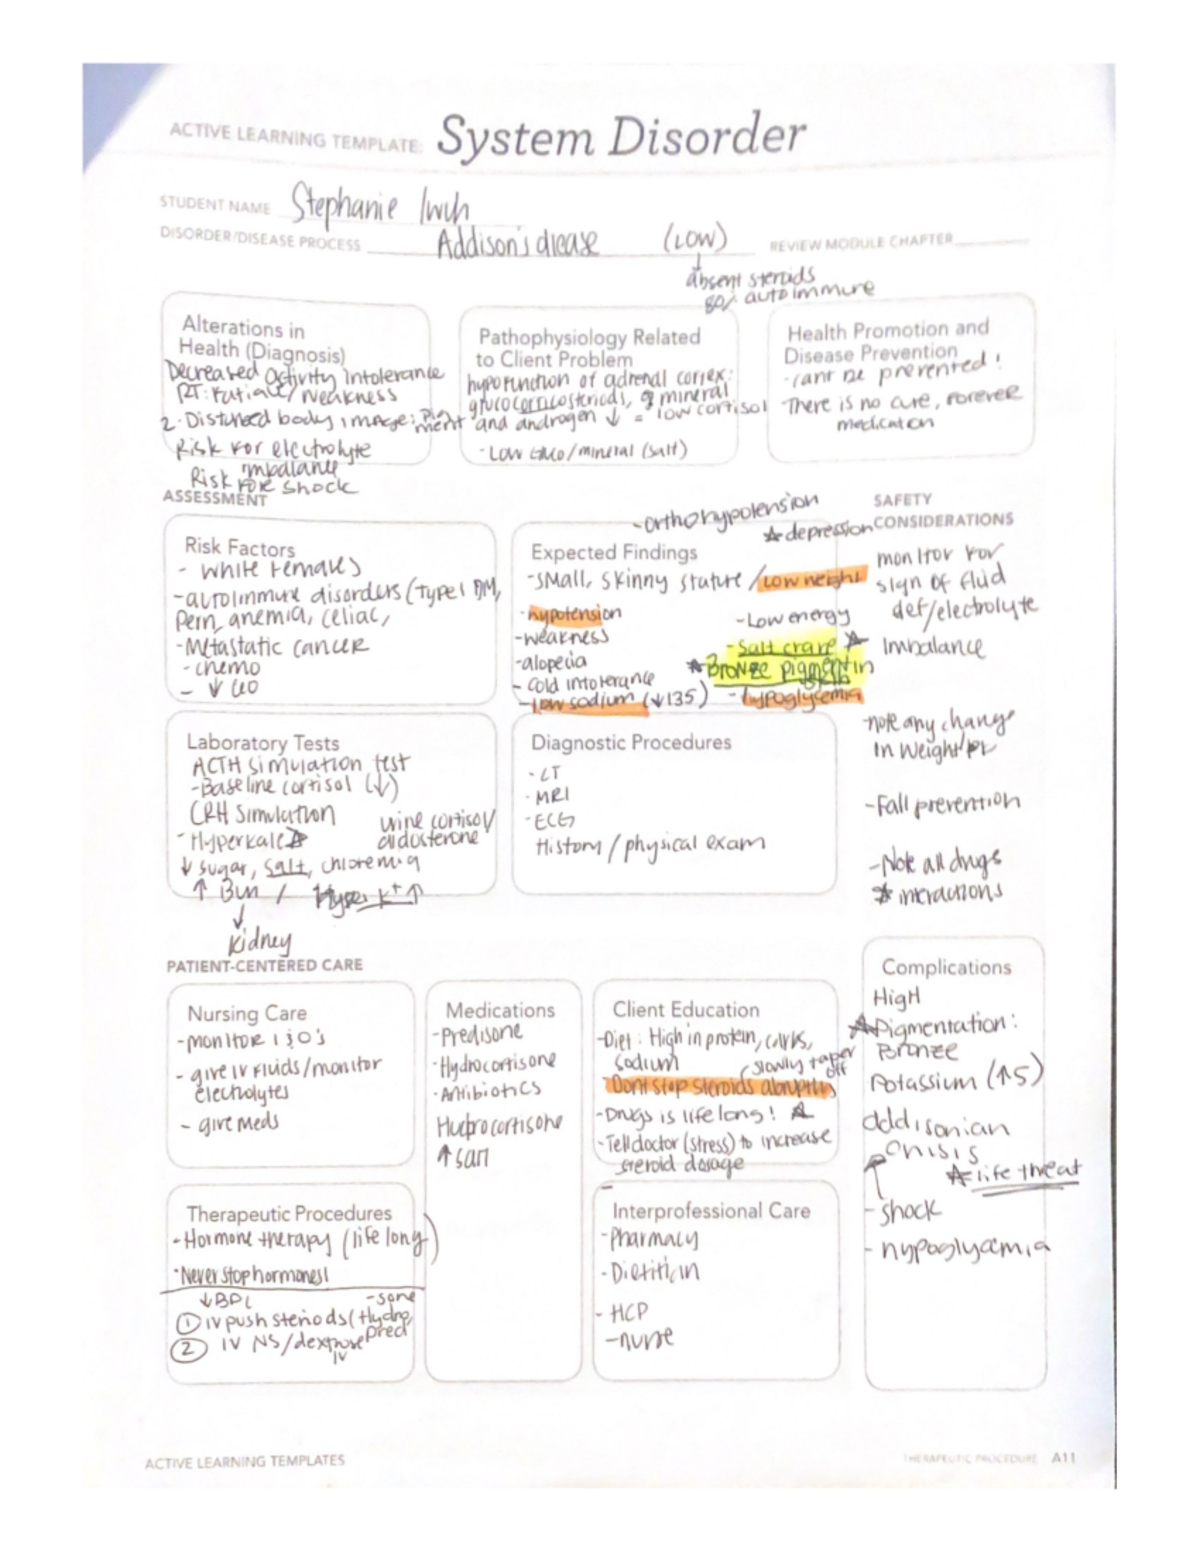 ACTIVE LEARNING TEMPLATE: System Disorder
STUDENT NAME Stephanie
DISORDER/DISEASE PROCESS Addison's diease (LOW) REVIEW MODULE CHAPTER
absent steroids
80% autoimmure
Alterations in
Health (Diagnosis)
Decreased activity intolerance
RT: Fatigue/weakness
2. Disturbed body image: Pig
ment
Risk for electrolyte
imbalance
Risk FOR shock
Pathophysiology Related
to Client Problem
hypofunction of adrenal cortex:
glucocorticosteriods, mineral
and androgen ↓ = low cortisol
- Low Gluco/mineral (salt)
Health Promotion and
Disease Prevention
- cant be prevented!
There is no cure, forever
medication
ASSESSMENT
Risk Factors
- white females
- autoimmune disorders (type 1 DM,
Pern, anemia, celiac,
- Metastatic cancer
- chemo
- ↓
- orthohypotension
☆ depression
Expected Findings
- small, skinny stature / low weight
- hypotension
- weakness
- alopecia
- cold intolerance
- low sodium (↓135)
- Low energy
- Salt crave ☆
☆ Bronze pigment in
skin
- hypoglycemia
SAFETY
CONSIDERATIONS
monitor for
sign of fluid
def/electrolyte
Imbalance
- note any change
in weight/
- Fall prevention
- Note all drugs
☆ interactions
Laboratory Tests
ACTH simulation test
- Baseline cortisol (↓)
CRH simulation
- Hyperkale ☆
urine cortisol/
aldosterone
↓ sugar, salt, chloremia
↑ Bun / Hyper k+ ↑
↓
Kidney
Diagnostic Procedures
- CT
- MRI
- ECG
History / physical exam
PATIENT-CENTERED CARE
Nursing Care
- monitor I & O's
- give IV fluids/monitor
electrolytes
- give meds
Medications
- Predisone
- Hydrocortisone
- Antibiotics
↑ salt
Client Education
- Diet: High in protein, carbs,
sodium
(slowly taper
off
- Dont stop steroids abruptly
- Drugs is life long! ☆
- Tell doctor (stress) to increase
steroid dosage
Complications
High
☆ Pigmentation:
Bronze
Potassium (↑5)
addisonian
crisis
☆ life threat
- shock
- hypoglycemia
Therapeutic Procedures
- Hormone therapy (life long)
- Never stop hormones!
- sone
① IV push steriods (Hydro,
pred
② IV NS/dextrose
IV
Interprofessional Care
- Pharmacy
- Dietitian
- HCP
- nurse
ACTIVE LEARNING TEMPLATES
THERAPEUTIC PROCEDURE A11